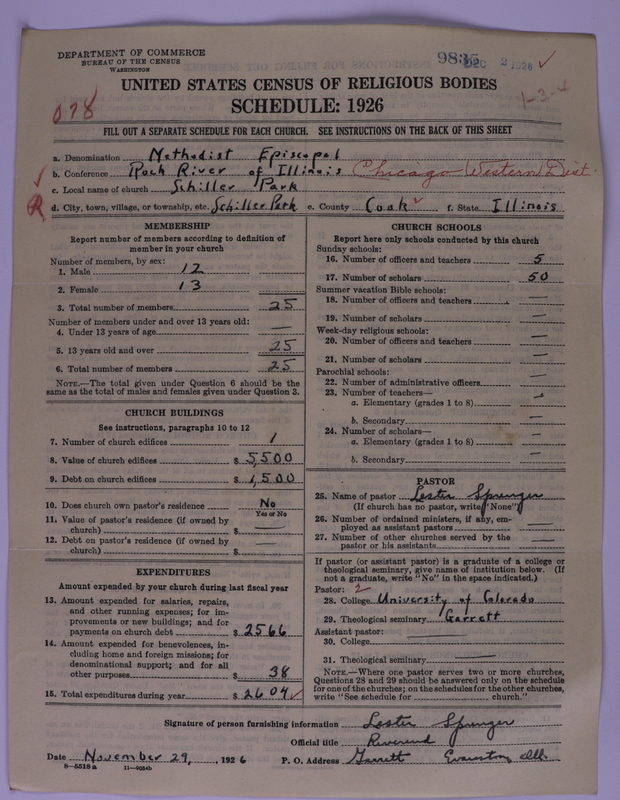 DEPARTMENT OF COMMERCE
BUREAU OF THE CENSUS
WASHINGTON
DEC 2 1926
1-3-4
UNITED STATES CENSUS OF RELIGIOUS BODIES
SCHEDULE: 1926
078
FILL OUT A SEPARATE SCHEDULE FOR EACH CHURCH. SEE INSTRUCTIONS ON THE BACK OF THIS SHEET
a. Denomination Methodist Episcopal
b. Conference Rock River of Illinois Chicago Western Dist.
c. Local name of church Schiller Park
d. City, town, village, or township, etc. Schiller Park e. County Cook f. State Illinois
MEMBERSHIP
Report number of members according to definition of
member in your church
Number of members, by sex:
1. Male 12
2. Female 13
3. Total number of members 25
Number of members under and over 13 years old:
4. Under 13 years of age —
5. 13 years old and over 25
6. Total number of members 25
NOTE.—The total given under Question 6 should be the
same as the total of males and females given under Question 3.
CHURCH BUILDINGS
See instructions, paragraphs 10 to 12
7. Number of church edifices 1
8. Value of church edifices $ 5,500
9. Debt on church edifices $ 1,500
10. Does church own pastor's residence? No
Yes or No
11. Value of pastor's residence (if owned by
church) $ —
12. Debt on pastor's residence (if owned by
church) $ —
EXPENDITURES
Amount expended by your church during last fiscal year
13. Amount expended for salaries, repairs,
and other running expenses; for im-
provements or new buildings; and for
payments on church debt $ 2566
14. Amount expended for benevolences, in-
cluding home and foreign missions; for
denominational support; and for all
other purposes $ 38
15. Total expenditures during year $ 2604
CHURCH SCHOOLS
Report here only schools conducted by this church
Sunday schools:
16. Number of officers and teachers 5
17. Number of scholars 50
Summer vacation Bible schools:
18. Number of officers and teachers —
19. Number of scholars —
Week-day religious schools:
20. Number of officers and teachers —
21. Number of scholars —
Parochial schools:
22. Number of administrative officers —
23. Number of teachers—
a. Elementary (grades 1 to 8) —
b. Secondary —
24. Number of scholars—
a. Elementary (grades 1 to 8) —
b. Secondary —
PASTOR
25. Name of pastor Lester Sprenger
(If church has no pastor, write "None")
26. Number of ordained ministers, if any, em-
ployed as assistant pastors —
27. Number of other churches served by the
pastor or his assistants —
If pastor (or assistant pastor) is a graduate of a college or
theological seminary, give name of institution below. (If
not a graduate, write "No" in the space indicated.)
Pastor: 2
28. College University of Colorado
29. Theological seminary Garrett
Assistant pastor:
30. College —
31. Theological seminary —
NOTE.—Where one pastor serves two or more churches,
Questions 28 and 29 should be answered only on the schedule
for one of the churches; on the schedules for the other churches,
write "See schedule for church."
Signature of person furnishing information Lester Sprenger
Official title Reverend
Date November 29, 1926 P. O. Address Garrett Evanston Ill.
8—5518a 11—9054b